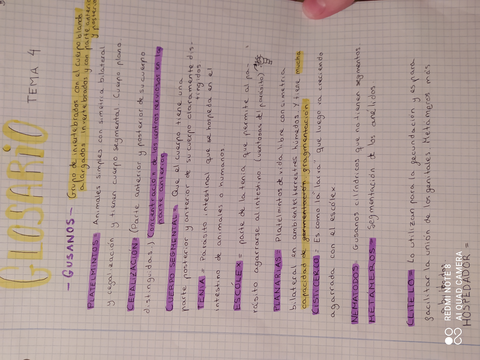 GLOSARIO TEMA 4
- GUSANOS - Grupo de invertebrados con el cuerpo blando
alargados invertebrados y con parte anterior
y posterior
PLATELMINTOS = Animales simples con simetría bilateral
y cegalización y tienen cuerpo segmental. Cuerpo plano
CEGALIZACIÓN = (Parte anterior y posterior de su cuerpo
distinguidas) Concentración de los centros nerviosos en la
parte anterior
CUERPO SEGMENTAL = Que el cuerpo tiene una
parte posterior y anterior de su cuerpo claramente dis-
tingidos
TENIA = Parásito intestinal que se hospeda en el
intestino de animales o humanos
ESCÓLEX = parte de la tenia que permite al pa-
rásito agarrarse al intestino (ventosas del parásito)
PLANARIAS = Platelmintos de vida libre con simetría
bilateral en ambientes terrestres húmedos y tiene mucha
capacidad de fragmentación
CISTICERCO = Es como la "larva" que luego va creciendo
agarrada con el escolex
NEMATODOS = Gusanos cilíndricos que no tienen segmentos
METÁMEROS = Segmentación de los anélidos
CLITELO = Lo utilizan para la fecundación y es para
facilitar la unión de los genitales. Metámeros más
HOSPEDADOR =
REDMI NOTE 8
AI QUAD CAMERA